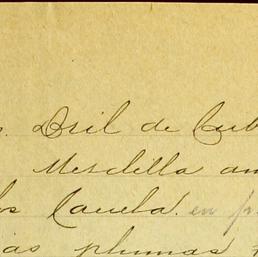 Dril de Cub
Mesclilla am
Canela. en
plumas